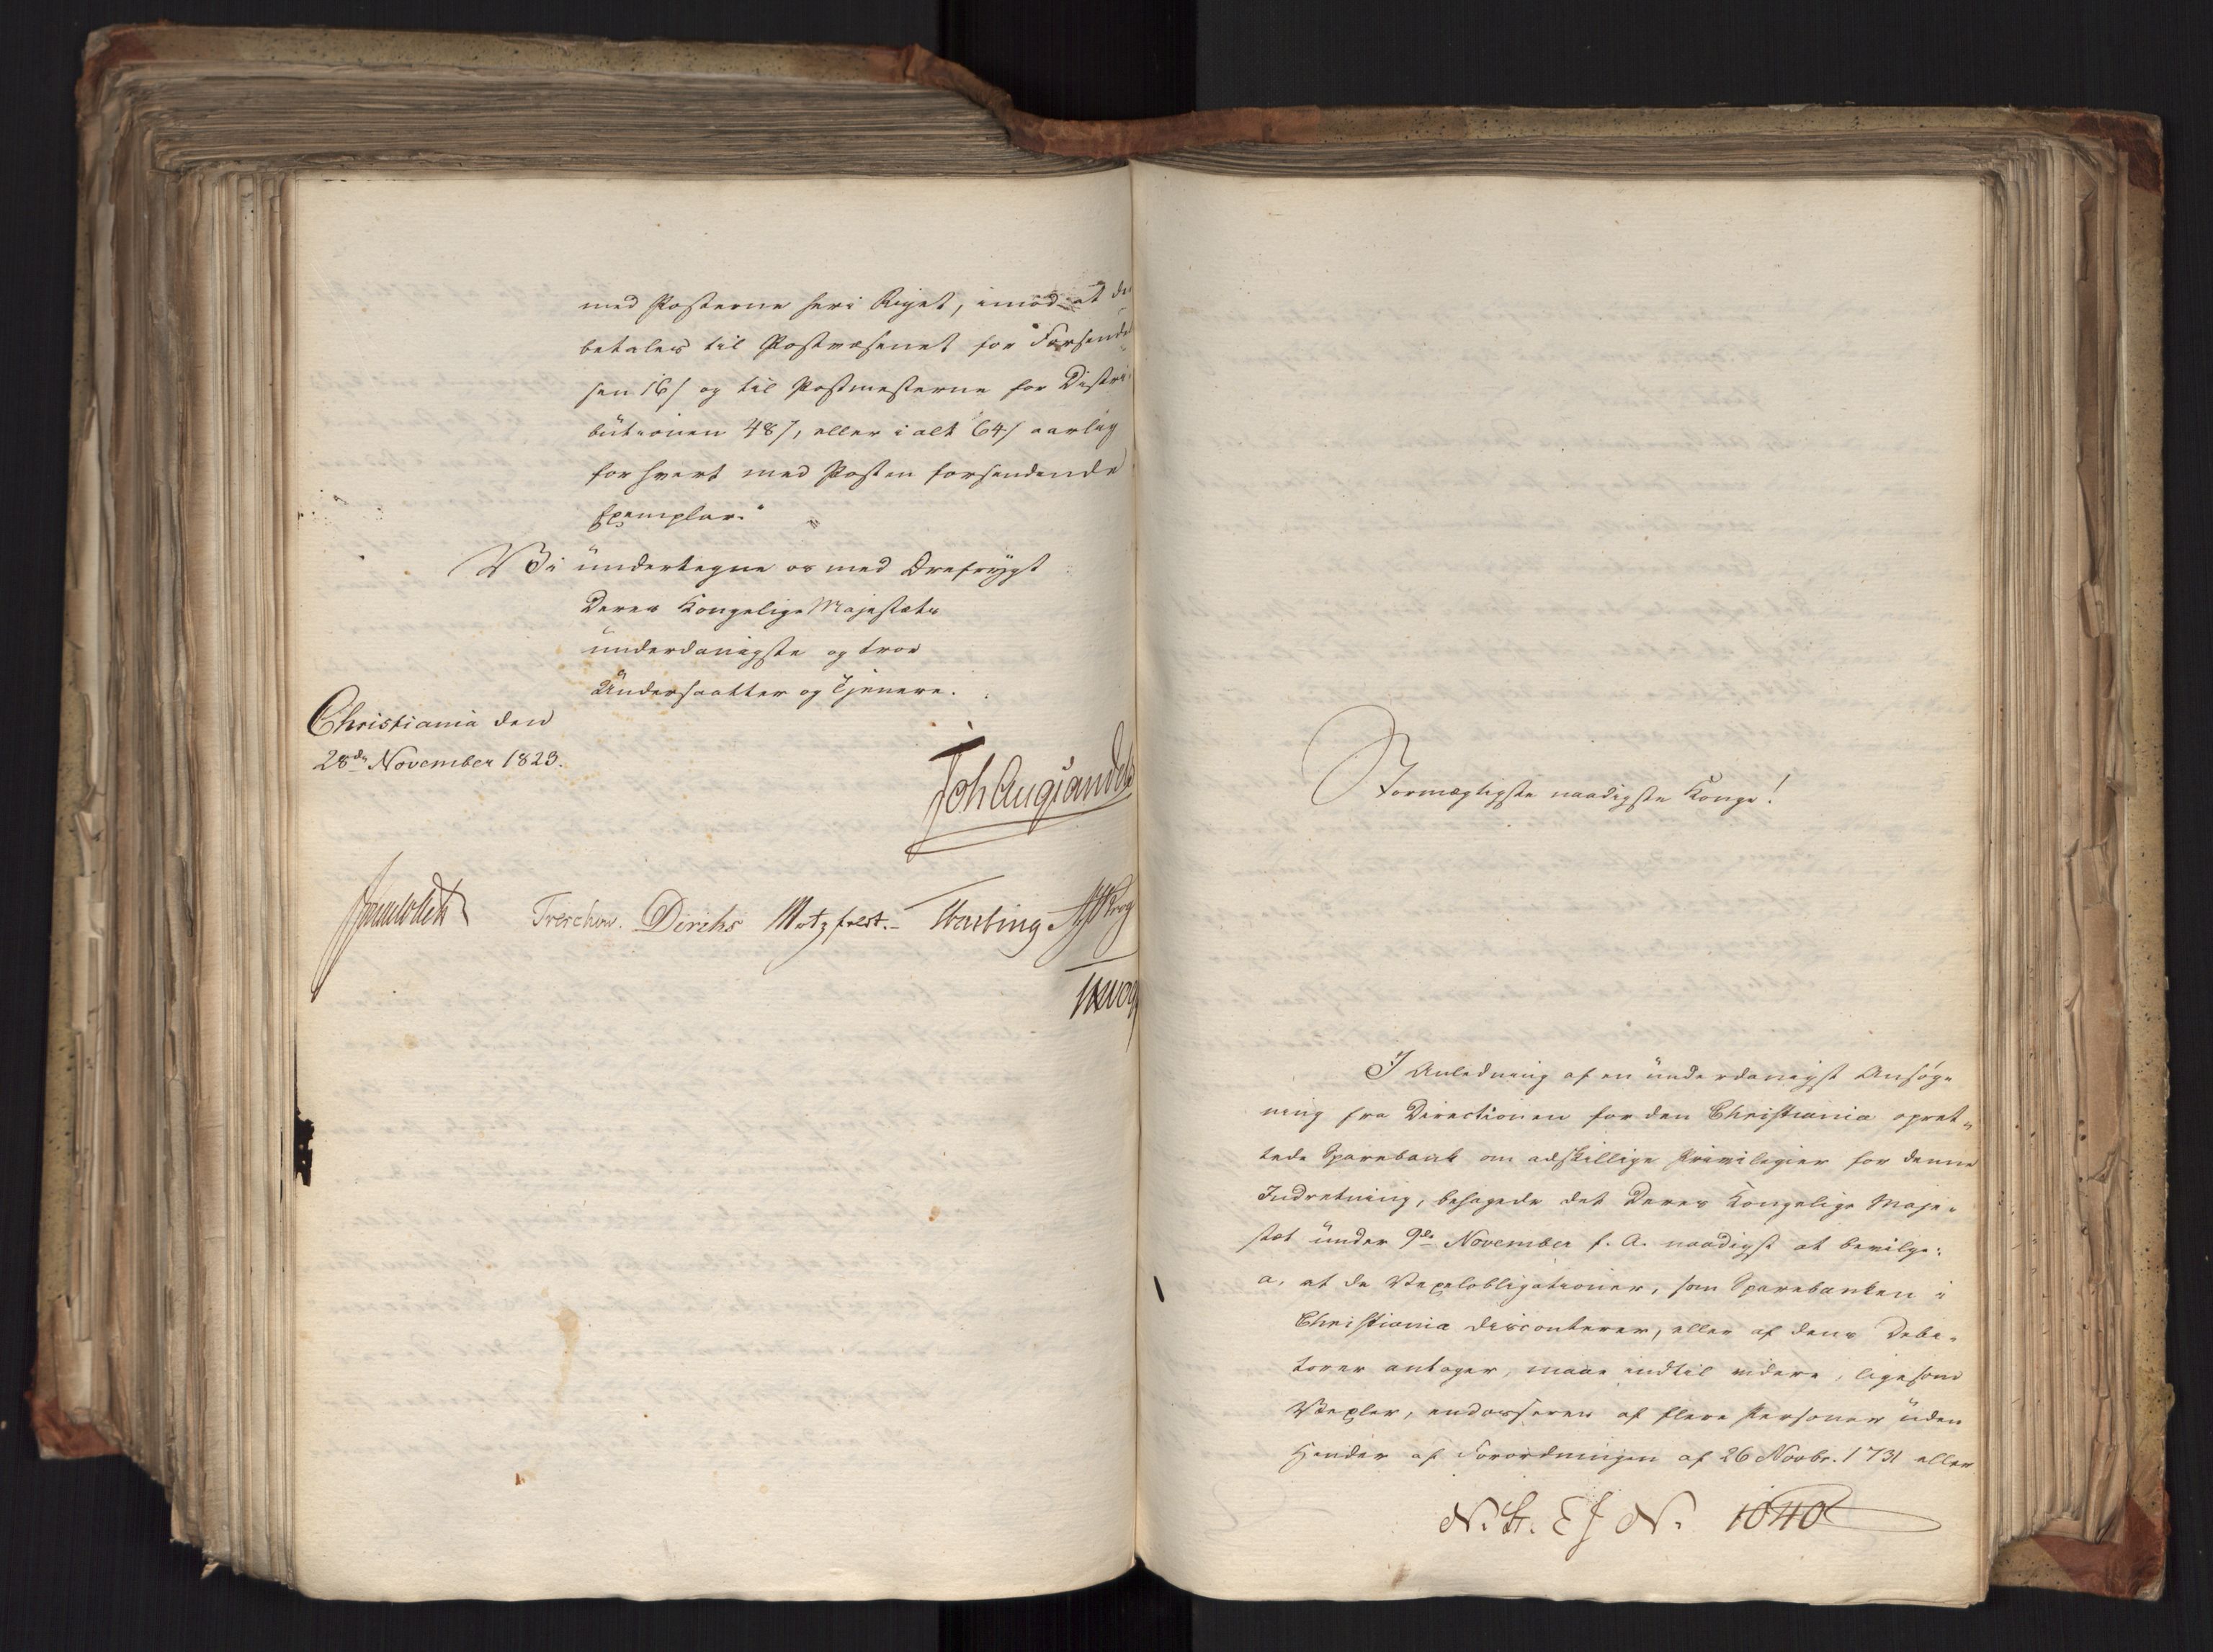 med Posterne heri Riget, imod at der
betales til Postvæsenet for Forsendel
sen 16/ og til Postmesterne for Distri-
butionen 48/, eller i alt 64/ aarlig
for hvert med Posten forsendende
Exemplar."
Vi undertegne os med Ærefrygt
Deres Kongelige Majestæts
underdanigste og troe
Undersaatter og Tjenere.
Christiania den
28de November 1823.
Joh Aug Sandels
Treschow. Diriks Motzfeldt.
Stormægtigste naadigste Konge!
I Anledning af en underdanigst Ansøg-
ning fra Directionen for den Christiania opret-
tede Sparebank om adskillige Privilegier for denne
Indretning, behagede det Deres Kongelige Maje-
stæt under 9de November f. A. naadigst at bevilge:
a, at de Vexelobligationer, som Sparebanken i
Christiania disconterer, eller af dens Debi-
torer antager, maae indtil videre, ligesom
Vexler, endosseres af flere Personer uden
Hinder af Forordningen af 26 Novbr. 1731 eller
N. St. E J N. 1040